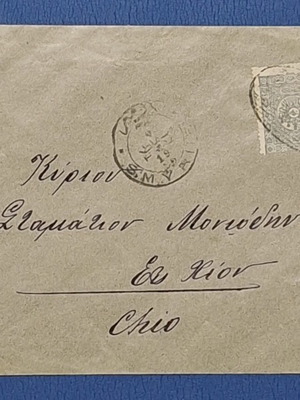 Κύριον
Σταμάτιον Μονιόδην
Εις Χίον
Chio